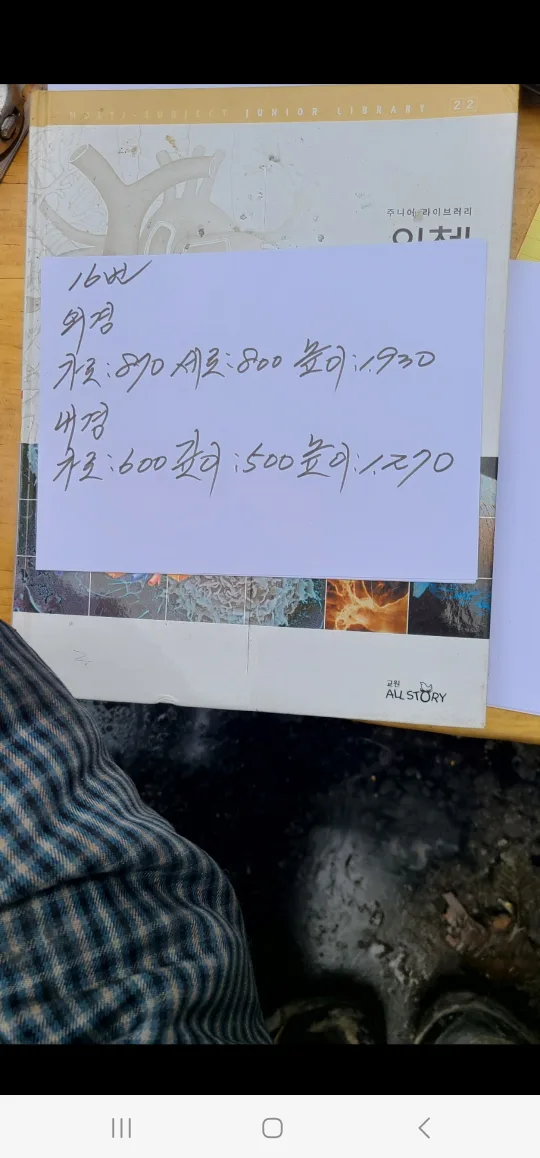 MULTI-SUBJECT JUNIOR LIBRARY 22
주니어 라이브러리
인체
16번
외경
가로:870 세로:800 높이:1.930
내경
가로:600 깊이:500 높이:1.270
교원
ALL STORY